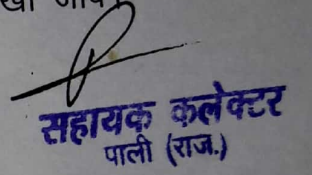 जावे
सहायक कलेक्टर
पाली (राज.)